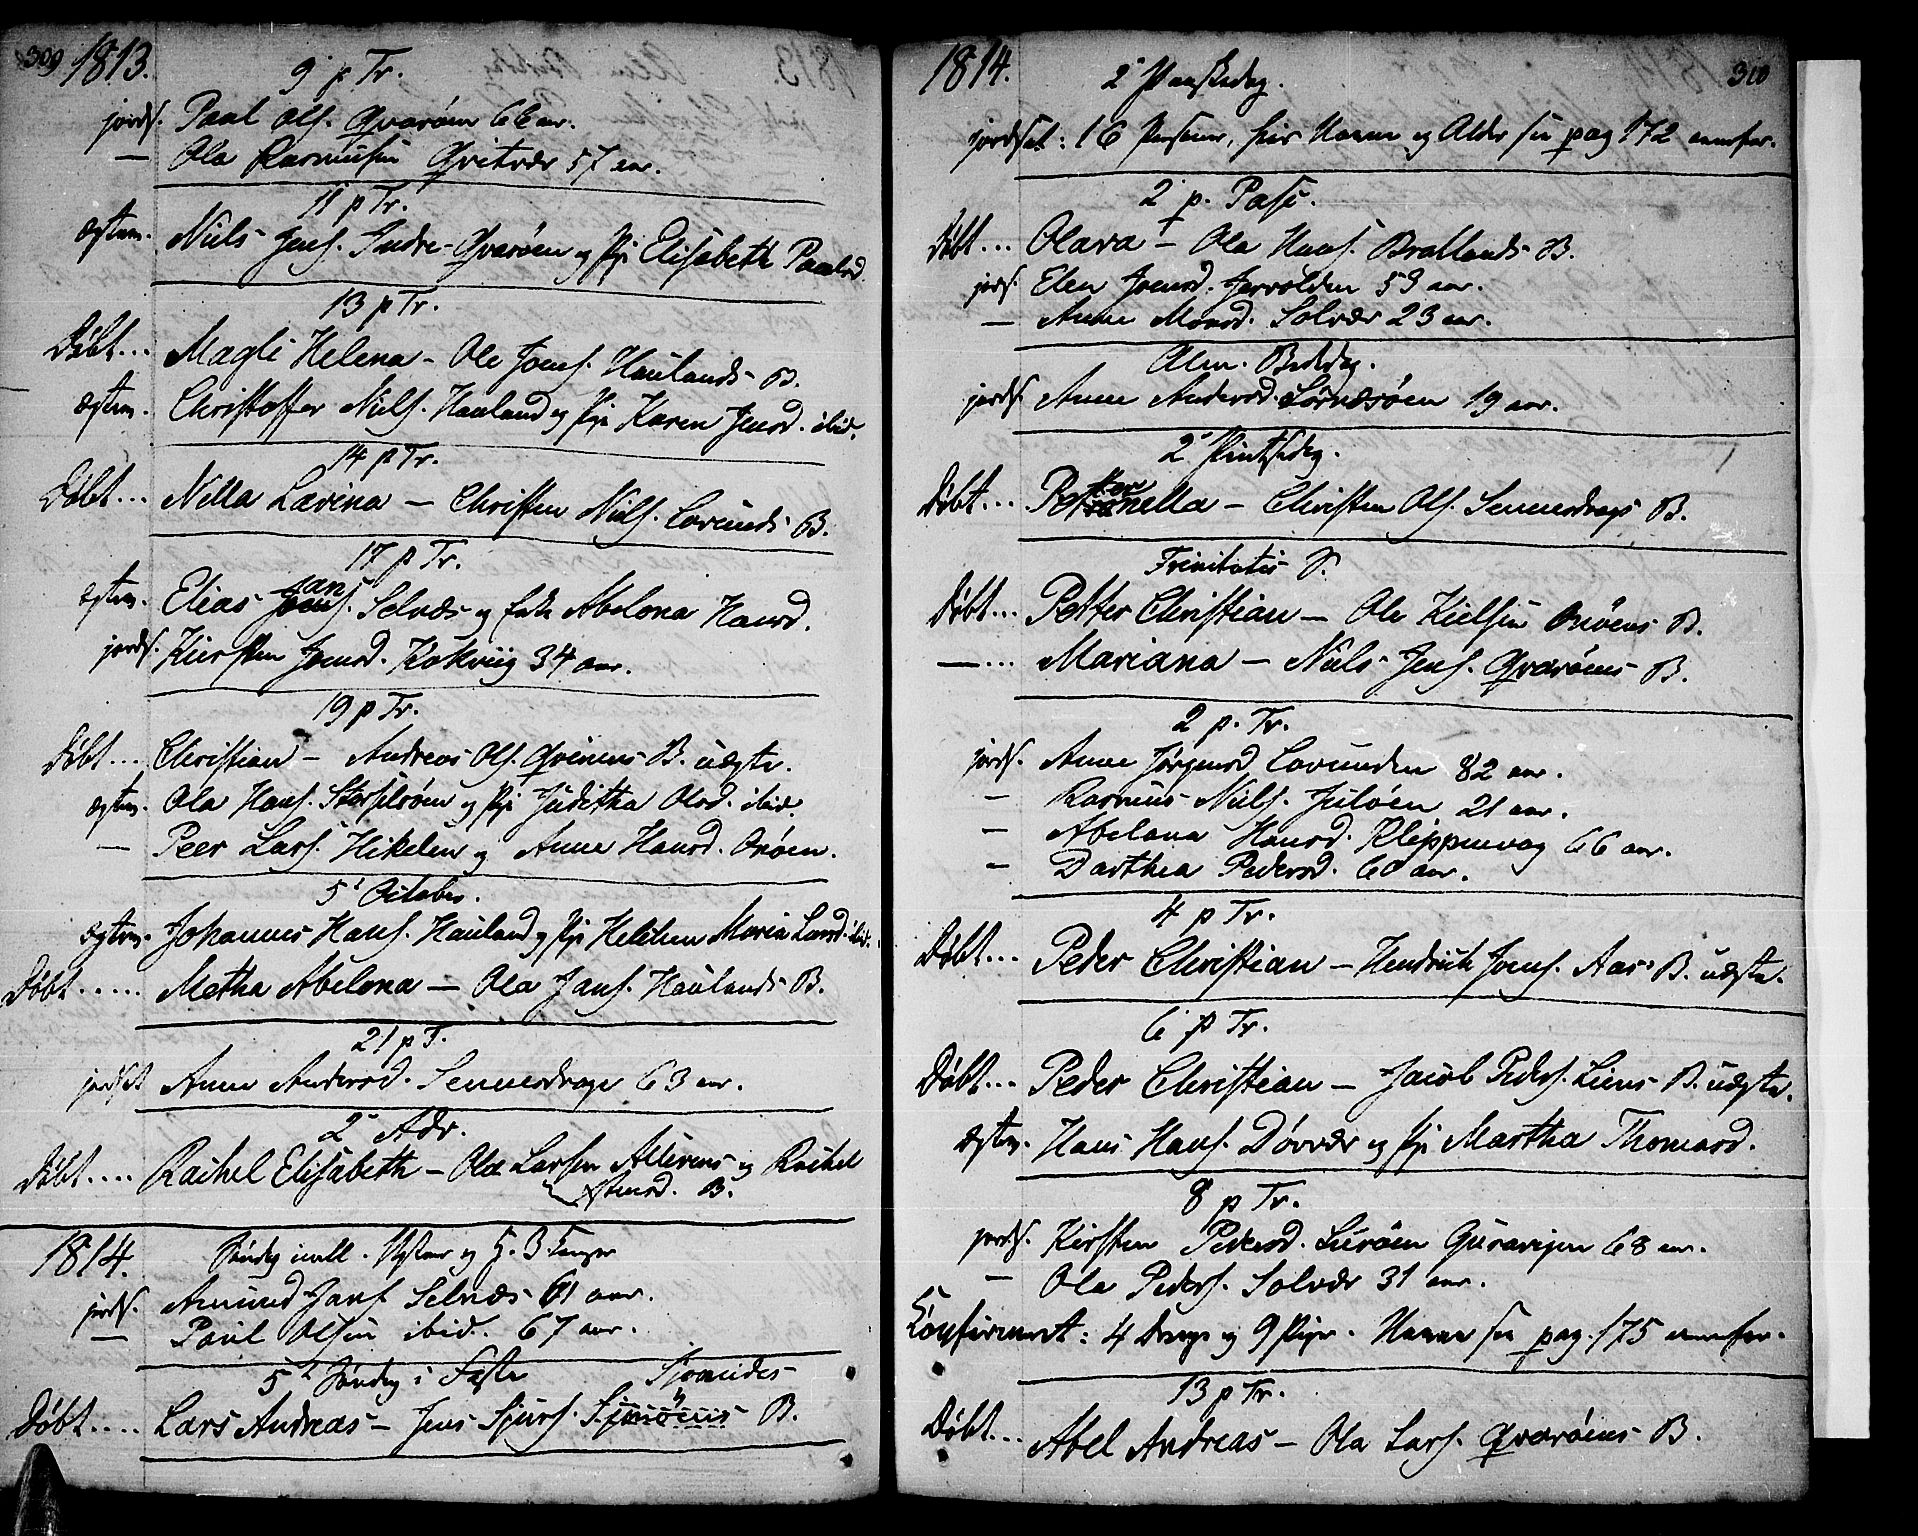 309 1813.
9 p Tr.
jords. Paul Ols. Qvarøen 66 aar.
— Ola Rasmusen Qvitvær 57 aar.
11 p Tr.
Ægtev. Niels Jens. Indre-Qvarøen og Pje Elisabeth Paulsd.
13 p Tr.
Døbt... Magli Helena - Ole Joens. Haulands B.
Ægtev. Christoffer Niels. Hauland og Pje Karen Jensd. ibid.
14 p Tr.
Døbt... Nilla Lavina — Christen Niels. Lovunds B.
17 p Tr.
Ægtev. Elias Jans. Selnæs og Enke Abelona Hansd.
jords. Kirsten Joensd. Kokviig 34 aar.
19 p Tr.
Døbt... Christian — Andreas Ols. Qvinens B. uægte.
Ægtev. Ola Hans. Storselsøen og Pje Juditha Olsd. ibid.
— Peer Lars. Hikelen og Anne Hansd. Onøen.
5t October.
Ægtev. Johannes Hans. Hauland og Pje Helchen Maria Larsd. ibid.
Døbt..... Metha Abelona — Ola Jans. Haulands B.
21 p T.
jordset Anne Andersd. Sennesdrage 63 aar.
2 Adv.
Døbt.... Rachel Elisabeth — Ola Larsen Altervens og Rachel
B.
1814. Søndag imell. Nytaar og H. 3 Konger
jords. Amund Jans Selnæs 61 aar.
— Paul Olsen ibid. 67 aar.
5t Søndag i Faste
Døbt.... Lars Andreas — Jens Sjurs. B.
1814. 310
2 Paaskedag.
jordset: 16 Personer, hvis Navne og Alder see pag 172 nænfor.
2 p. Pasc.
Døbt... Olava — Ola Hans. Brattlands B.
jords. Elen Joensd. Jervolden 59 aar.
— Anne Monsd. Solvær 23 aar.
Alm. Bededag.
jords. Anne Andersd. Sørnæsøen 19 aar.
2 Pintsedag.
Døbt... Petternella — Christen Ols. Sennesdrags B.
Trinitatis S.
Døbt... Petter Christian — Ole Kielsen Onøens B.
—... Mariana — Niels Jens. Qvarøens B.
2 p. Tr.
jords. Anne Jørgensd Lovunden 82 aar.
— Rasmus Niels. Juløen 21 aar.
— Abelona Hansd. Klippenvog 66 aar.
— Darthea Pedersd. 60 aar.
4 p Tr.
Døbt... Peder Christian — Hendrich Joens. Aas B. uægte.
6 p Tr.
Døbt... Peder Christian — Jacob Peders. Liens B. uægte.
Ægtev. Hans Hans. Dørvær og Pje Martha Thomasd.
8 p Tr.
jords. Kirsten Pedersd. Lurøen 68 aar.
— Ola Peders. Solvær 31 aar.
Confirmeret: 4 Drenge og 9 Piger. Navne see pag. 175 nænfor.
13 p Tr.
Døbt... Abel Andreas — Ola Lars. Qvarøens B.